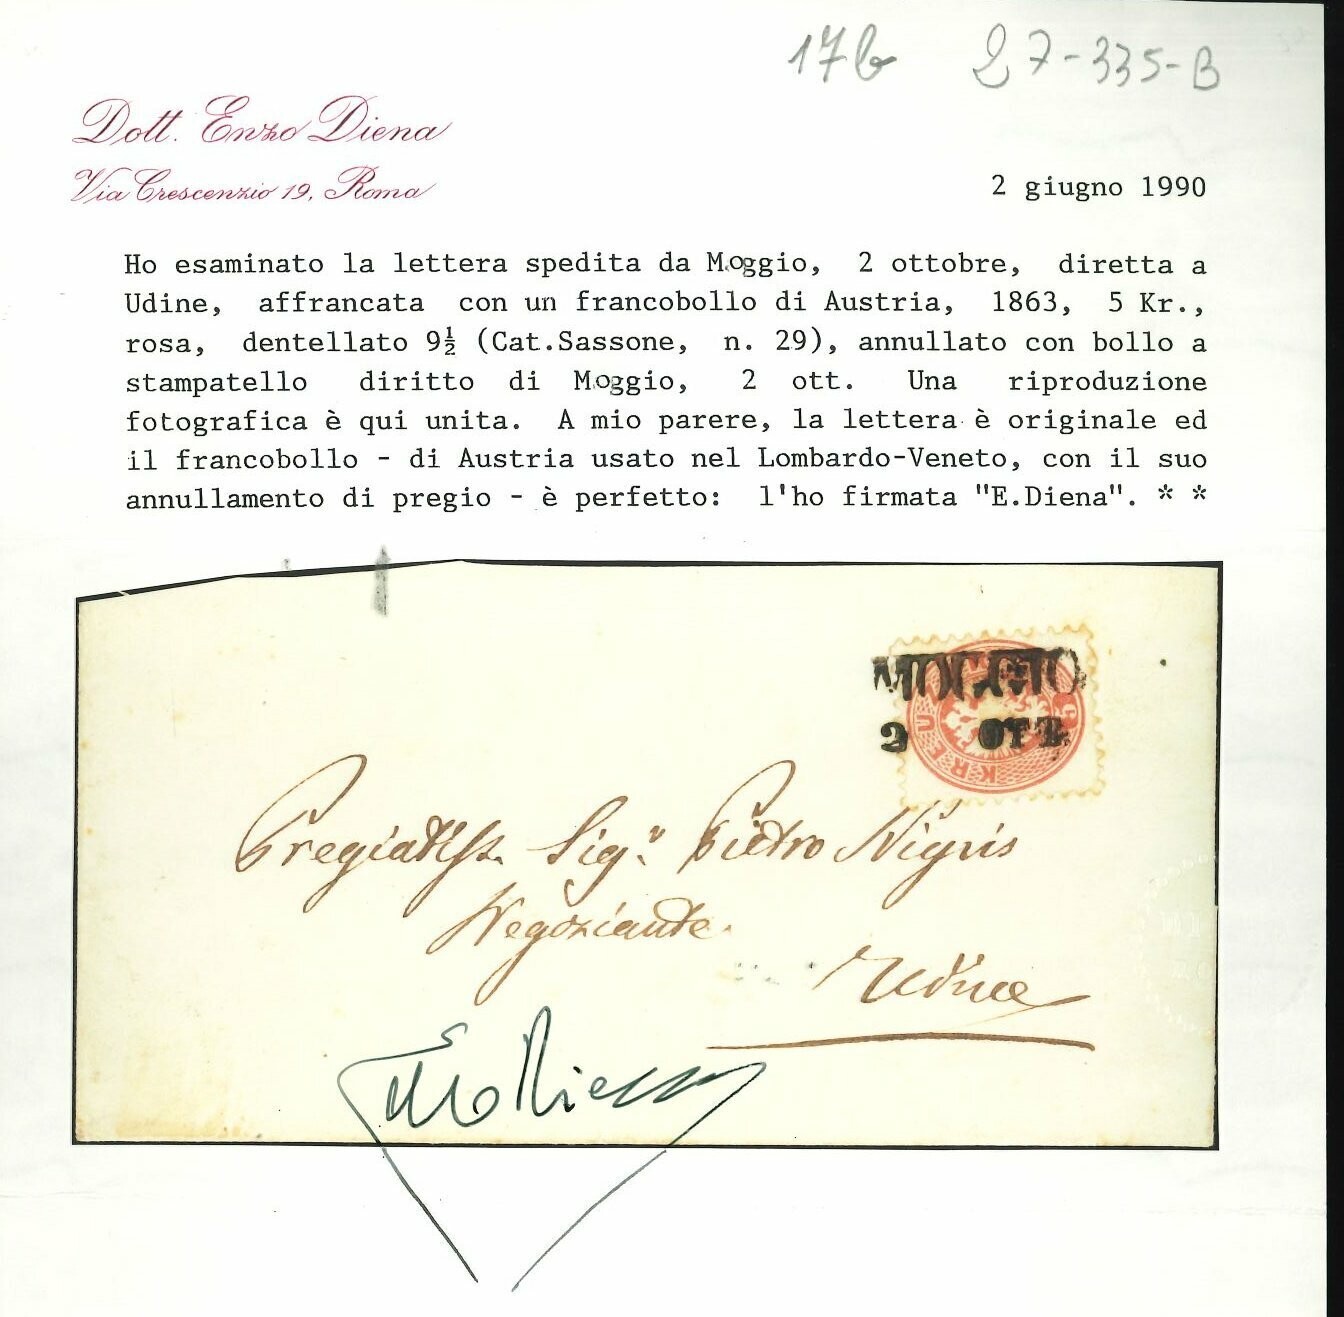 17b 27-335-B
Dott. Enzo Diena
Via Crescenzio 19, Roma
2 giugno 1990
Ho esaminato la lettera spedita da Moggio, 2 ottobre, diretta a
Udine, affrancata con un francobollo di Austria, 1863, 5 Kr.,
rosa, dentellato 9½ (Cat.Sassone, n. 29), annullato con bollo a
stampatello diritto di Moggio, 2 ott. Una riproduzione
fotografica è qui unita. A mio parere, la lettera è originale ed
il francobollo - di Austria usato nel Lombardo-Veneto, con il suo
annullamento di pregio - è perfetto: l'ho firmata "E.Diena". * *
MOGGIO
2 OTT.
5 KREU
Pregiatiss. Sigr. Pietro Nigris
Negoziante.
Udine